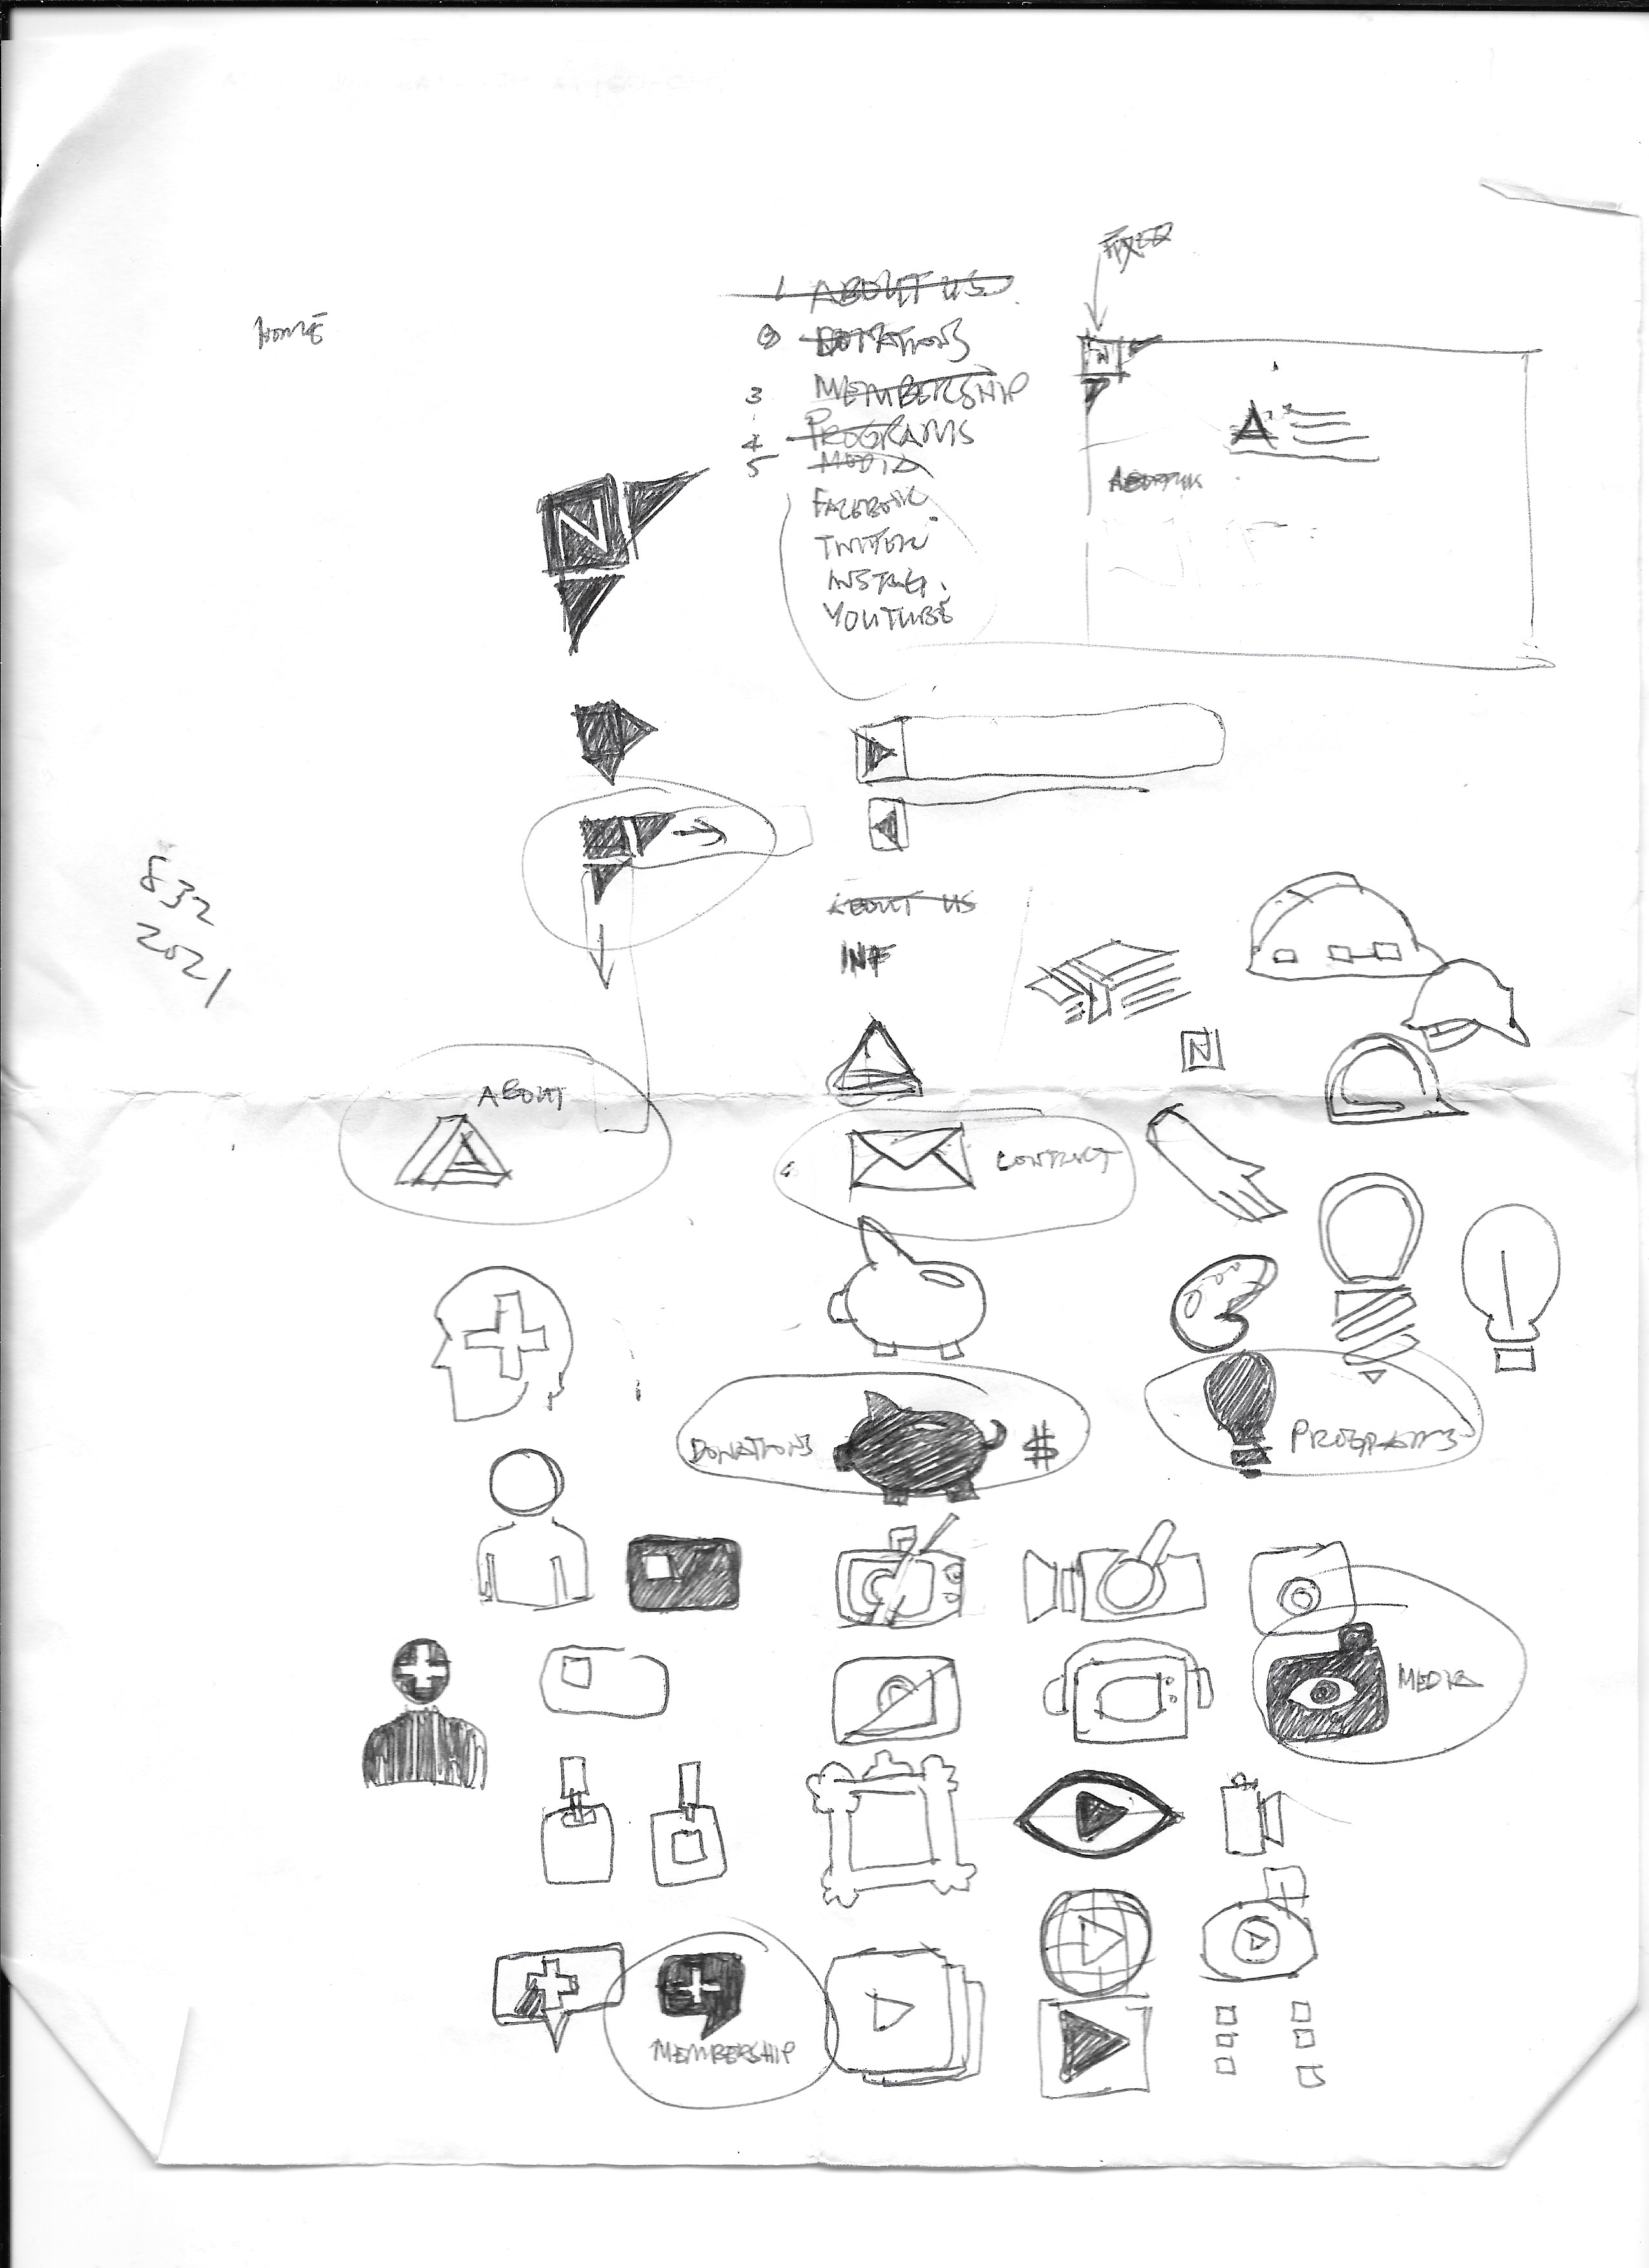 HOME
FIXED
1 ABOUT US
DONATIONS
3 MEMBERSHIP
4 PROGRAMS
5 MEDIA
FACEBOOK
TWITTER
INSTAG.
YOUTUBE
N
N
A
ABOUT US
832
2021
ABOUT US
INF
N
ABOUT
CONTACT
DONATIONS
$
PROGRAMS
MEDIA
MEMBERSHIP